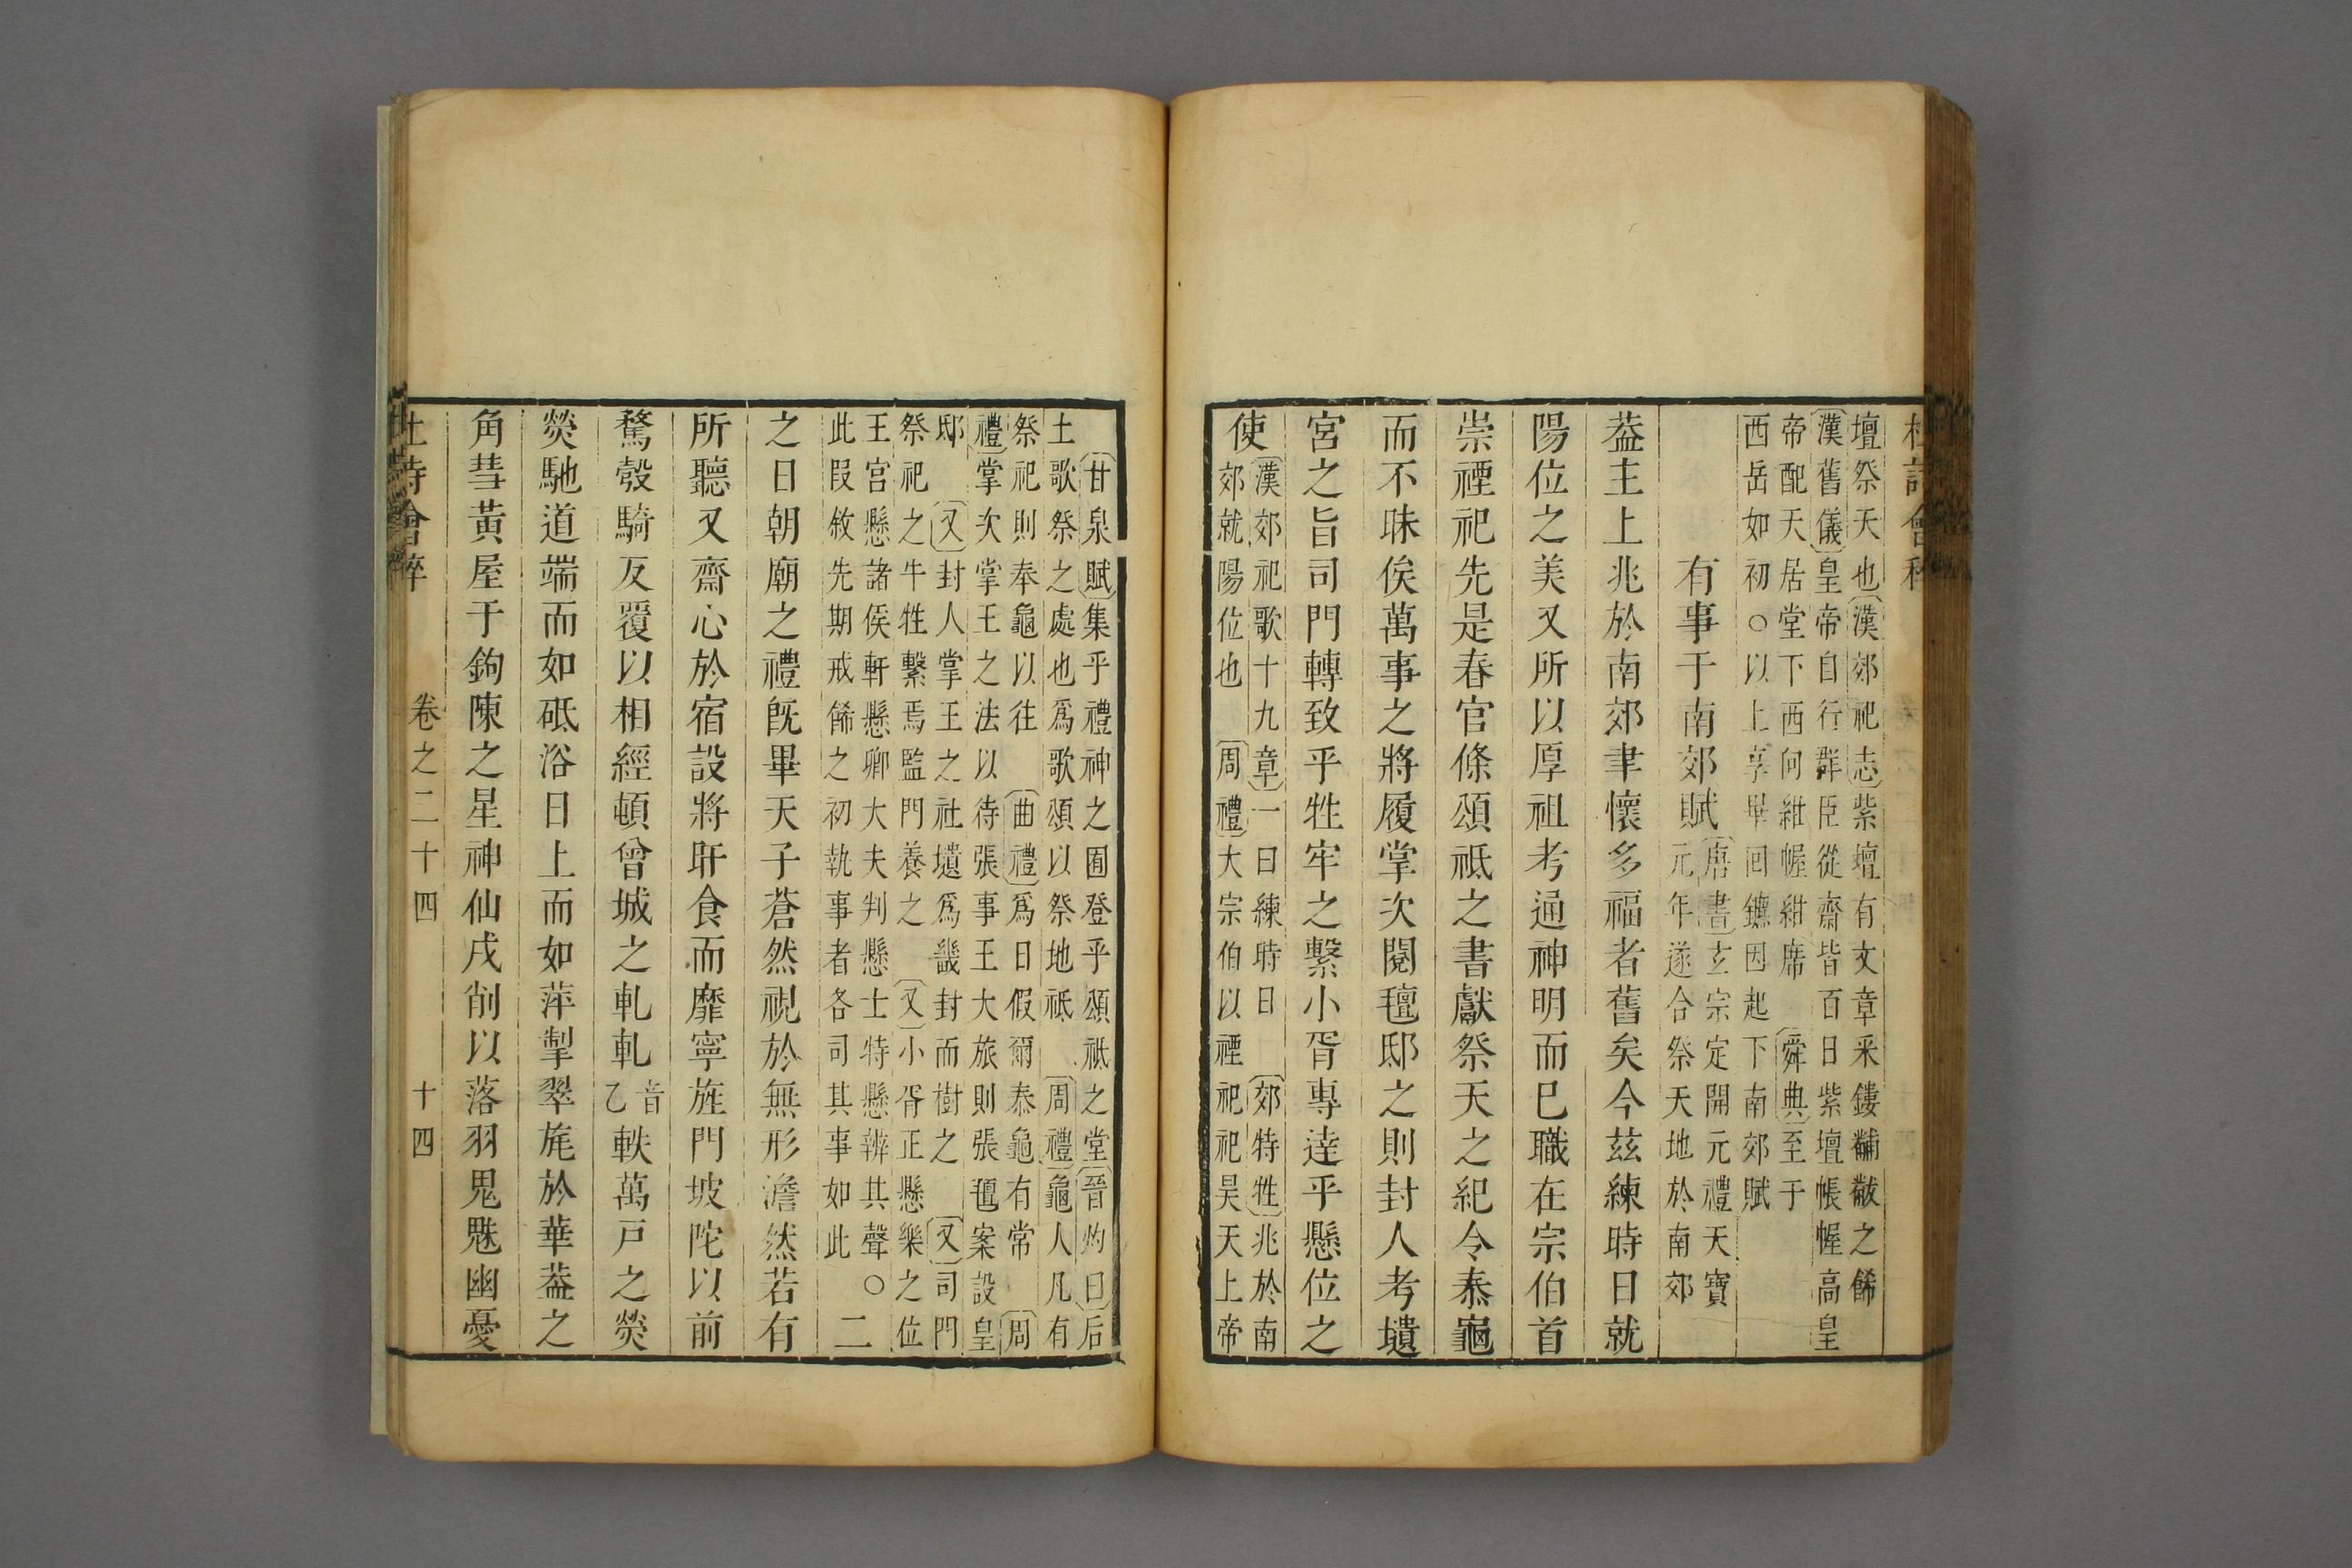 壇祭天也漢郊祀志紫壇有文章采鏤黼黻之餙
漢舊儀皇帝自行群臣從齋皆百日紫壇帳幄高皇
帝配天居堂下西向紺幄紺席舜典至于
西岳如初○以上享畢回鑣因起下南郊賦
有事于南郊賦
唐書玄宗定開元禮天寶
元年遂合祭天地於南郊
葢主上兆於南郊聿懷多福者舊矣今茲練時日就
陽位之美又所以厚祖考通神明而已職在宗伯首
崇禋祀先是春官條頌祇之書獻祭天之紀令泰龜
而不昧俟萬事之將履掌次閱氊邸之則封人考壝
宮之旨司門轉致乎牲牢之繫小胥專達乎懸位之
使
漢郊祀歌十九章一曰練時日郊特牲兆於南
郊就陽位也周禮大宗伯以禋祀祀昊天上帝
甘泉賦集乎禮神之囿登乎頌祇之堂晉灼曰后
土歌祭之處也爲歌頌以祭地祇周禮龜人凡有
祭祀則奉龜以往曲禮爲日假爾泰龜有常周
禮掌次掌王之法以待張事王大旅則張氊案設皇
邸又封人掌王之社壝爲畿封而樹之又司門
祭祀之牛牲繫焉監門養之又小胥正懸樂之位
王宮懸諸侯軒懸卿大夫判懸士特懸辨其聲○
此叚敘先期戒餙之初執事者各司其事如此
二
之日朝廟之禮旣畢天子蒼然視於無形澹然若有
所聽又齋心於宿設將旰食而靡寧旌門坡陀以前
騖彀騎反覆以相經頓曾城之軋軋音乙軼萬戸之熒
熒馳道端而如砥浴日上而如萍掣翠旄於華葢之
角彗黃屋于鉤陳之星神仙戌削以落羽鬼魅幽憂
卷之二十四
十四